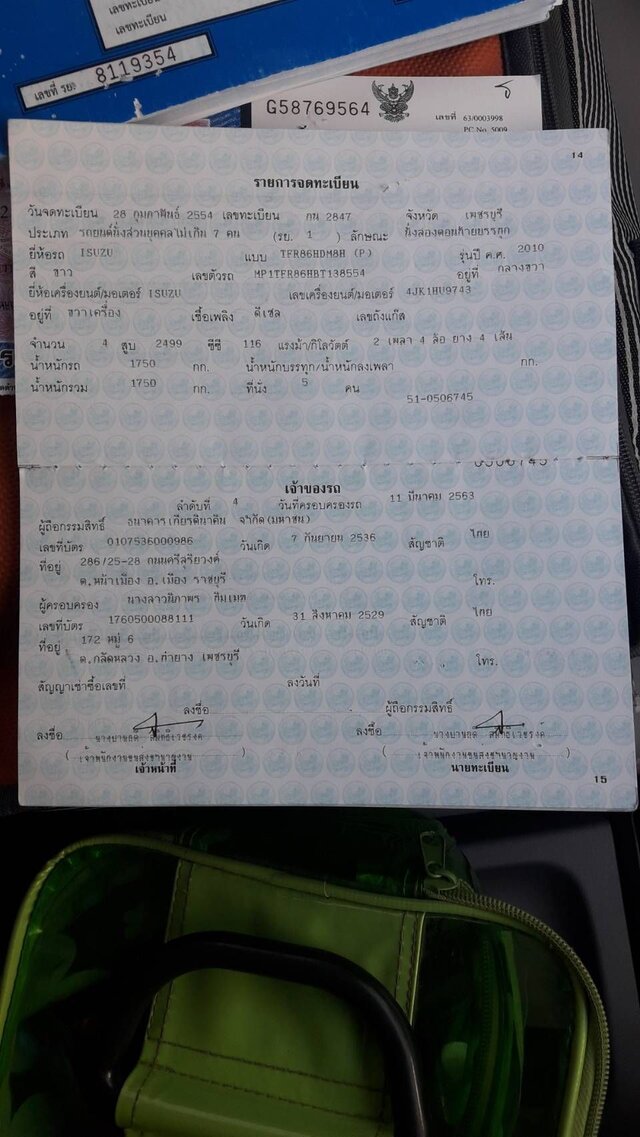 เลขทะเบียน
เลขทะเบียน
เลขที่ รย. 8119354
G58769564
เลขที่ 63/0003998
PC No. 5009
14
รายการจดทะเบียน
วันจดทะเบียน 28 กุมภาพันธ์ 2554 เลขทะเบียน กน 2847 จังหวัด เพชรบุรี
ประเภท รถยนต์นั่งส่วนบุคคลไม่เกิน 7 คน (รย. 1 ) ลักษณะ นั่งสองตอนท้ายบรรทุก
ยี่ห้อรถ ISUZU แบบ TFR86HDM8H (P) รุ่นปี ค.ศ. 2010
สี ขาว เลขตัวรถ MP1TFR86HBT138554 อยู่ที่ กลางขวา
ยี่ห้อเครื่องยนต์/มอเตอร์ ISUZU เลขเครื่องยนต์/มอเตอร์ 4JK1HU9743
อยู่ที่ ขวาเครื่อง เชื้อเพลิง ดีเซล เลขถังแก๊ส
จำนวน 4 สูบ 2499 ซีซี 116 แรงม้า/กิโลวัตต์ 2 เพลา 4 ล้อ ยาง 4 เส้น
น้ำหนักรถ 1750 กก. น้ำหนักบรรทุก/น้ำหนักลงเพลา กก.
น้ำหนักรวม 1750 กก. ที่นั่ง 5 คน
51-0506745
เจ้าของรถ
ลำดับที่ 4 วันที่ครอบครองรถ 11 มีนาคม 2563
ผู้ถือกรรมสิทธิ์ ธนาคารเกียรตินาคิน จำกัด(มหาชน)
เลขที่บัตร 0107536000986 วันเกิด 7 กันยายน 2536 สัญชาติ ไทย
ที่อยู่ 286/25-28 ถนนศรีสุริยวงศ์
ต.หน้าเมือง อ.เมือง ราชบุรี โทร.
ผู้ครอบครอง นางสาวนิภาพร
เลขที่บัตร 1760500088111 วันเกิด 31 สิงหาคม 2529 สัญชาติ ไทย
ที่อยู่ 172 หมู่ 6
ต.กลัดหลวง อ.ท่ายาง เพชรบุรี โทร.
สัญญาเช่าซื้อเลขที่ ลงวันที่
ลงชื่อ ผู้ถือกรรมสิทธิ์
ลงชื่อ ลงชื่อ
เจ้าหน้าที่ นายทะเบียน
15